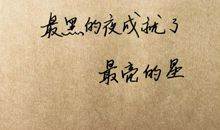 最黑的夜成就了
最亮的星